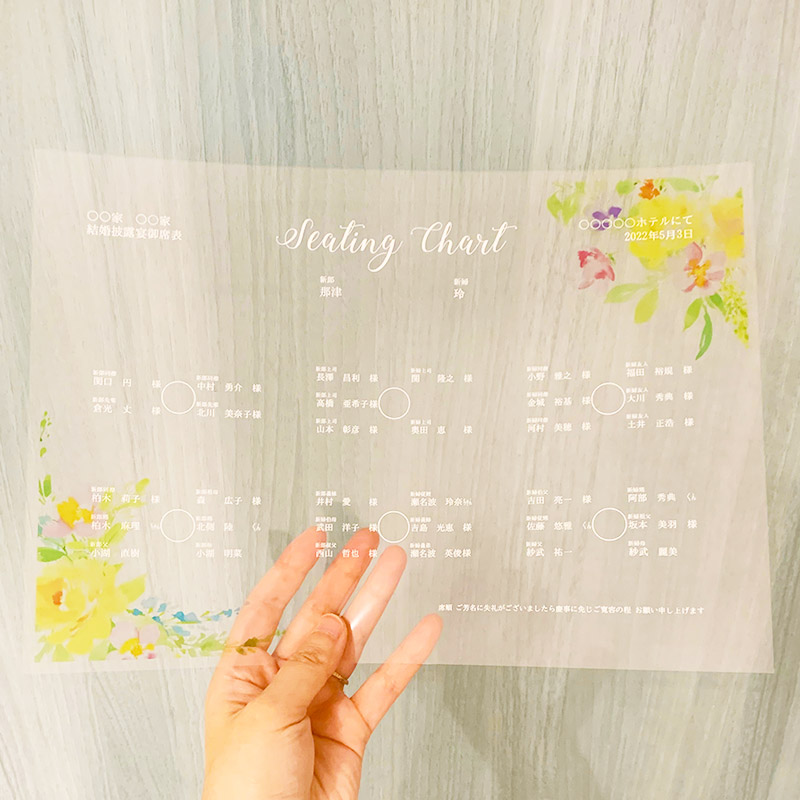 〇〇家 〇〇家
結婚披露宴御席表
Seating Chart
〇〇〇〇〇ホテルにて
2022年5月3日
新郎
那津
新婦
玲
関口 円 様
中村 勇介 様
倉光 丈 様
北川 美奈子様
新郎上司
長澤 昌利 様
新郎上司
関 隆之 様
新郎上司
高橋 亜希子様
新郎上司
山本 彰彦 様
新郎上司
奥田 恵 様
小野 雅之 様
新婦友人
福田 裕規 様
金城 裕基 様
新婦友人
大川 秀典 様
河村 美穂 様
新婦友人
土井 正浩 様
柏木 莉子 様
森 広子 様
柏木 麻理
北畑 陸 くん
小園 直樹
小園 明菜
井村 愛 様
瀬名波 玲奈
武田 洋子 様
吉島 光恵 様
西山 哲也 様
瀬名波 英俊様
吉田 亮一 様
阿部 秀典 くん
佐藤 悠雅 くん
坂本 美羽 様
紗武 祐一
紗武 麗美
席順 ご芳名に失礼がございましたら慶事に免じご寛容の程 お願い申し上げます